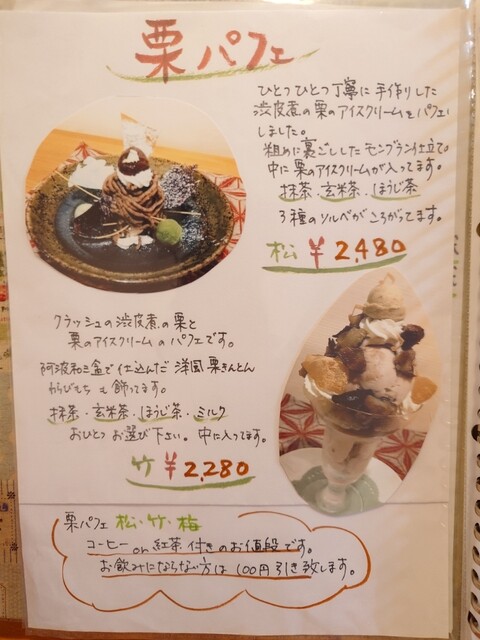 栗パフェ
ひとつひとつ丁寧に手作りした
渋皮煮の栗のアイスクリームをパフェに
しました。
粗めに裏ごししたモンブラン仕立て。
中に栗のアイスクリームが入ってます。
抹茶・玄米茶・ほうじ茶
3種のソルベがころがってます。
松 ¥2,480
クラッシュの渋皮煮の栗と
栗のアイスクリームのパフェです。
阿波和三盆で仕込んだ洋風栗きんとん
わらびもちも飾ってます。
抹茶・玄米茶・ほうじ茶・ミルク
おひとつお選び下さい。中に入ってます。
竹 ¥2,280
栗パフェ 松・竹・梅
コーヒー or 紅茶付きのお値段です。
お飲みにならない方は100円引き致します。